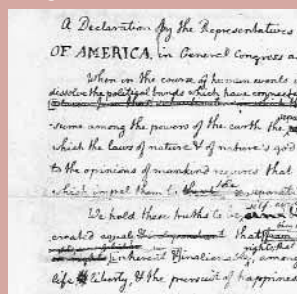 A Declaration by the Representatives
OF AMERICA, in General Congress a
When in the course of human events
dissolve the political bands which have connected
-sume among the powers of the earth the
which the laws of nature & of nature's god
to the opinions of mankind requires that
which impel them to the separation
We hold these truths to be self
created equal & that
inherent & inalienable, among
life & liberty, & the pursuit of happiness